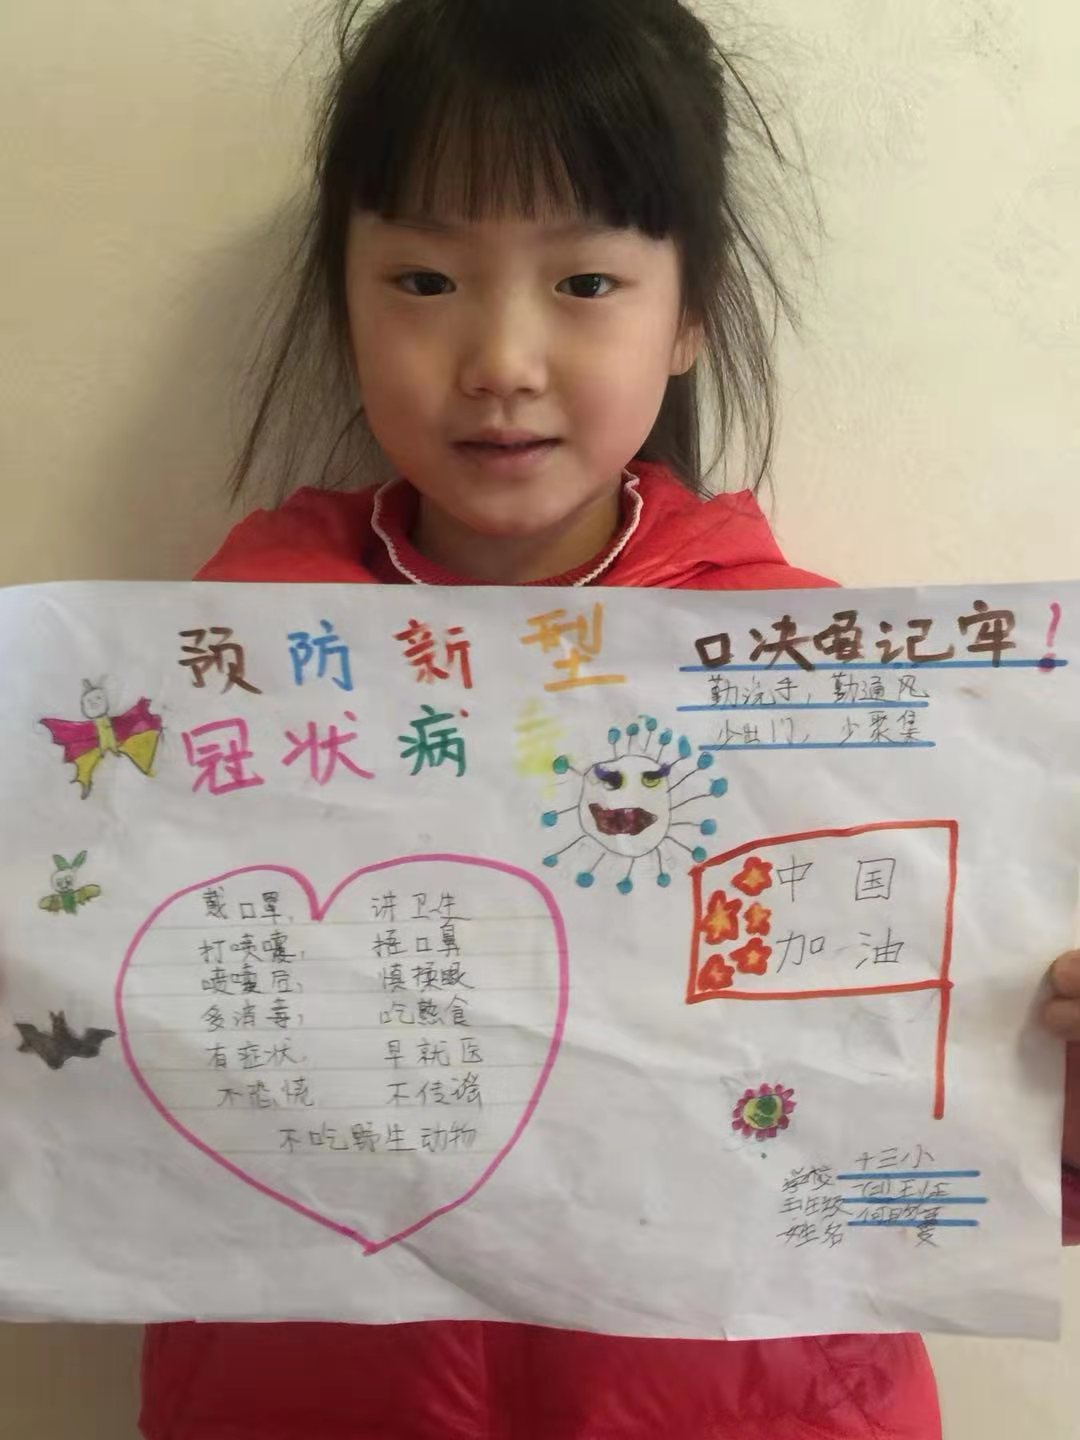 预防新型
冠状病毒
口决要记牢！
勤洗手，勤通风
少出门，少聚集
戴口罩， 讲卫生
打喷嚏， 捂口鼻
喷嚏后， 慎揉眼
多消毒， 吃熟食
有症状， 早就医
不恐慌 不传谣
不吃野生动物
中国
加油
学校 十三小
班级
姓名